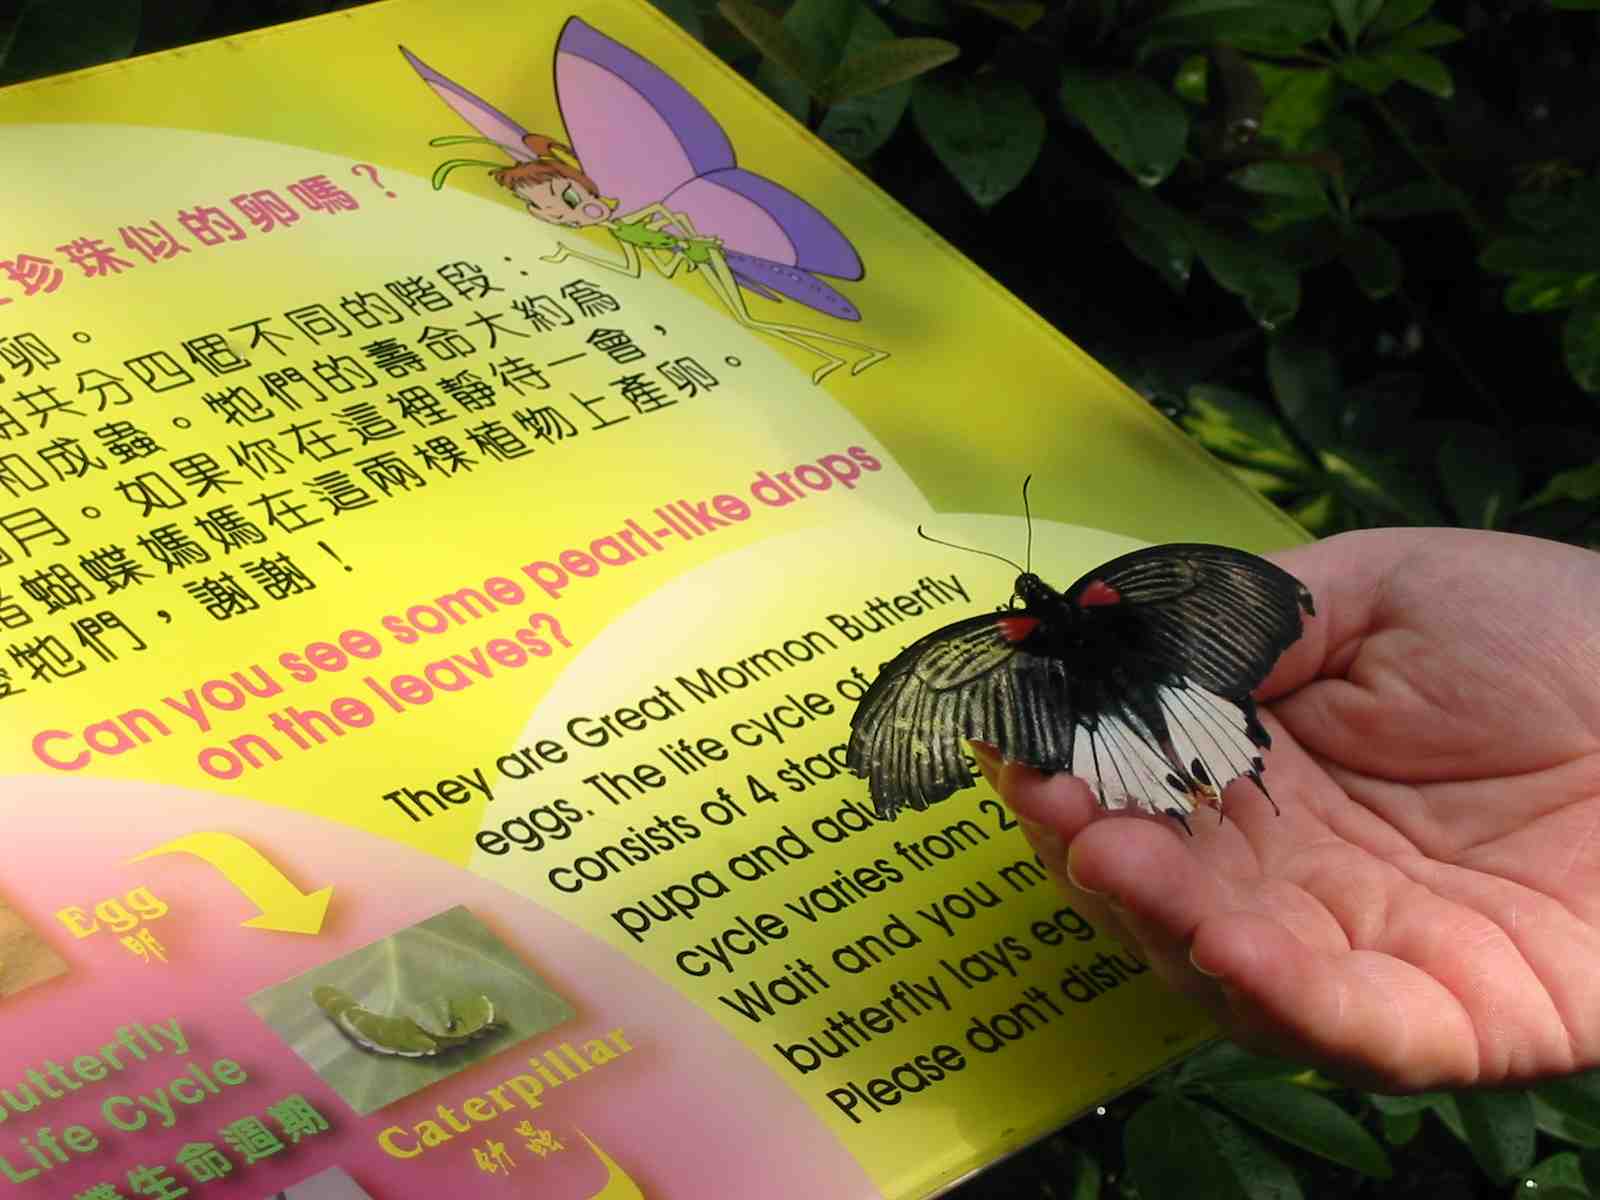 珍珠似的卵嗎？
卵。
共分四個不同的階段：
和成蟲。牠們的壽命大約為
月。如果你在這裡靜待一會，
蝴蝶媽媽在這兩棵植物上產卵。
牠們，謝謝！
Can you see some pearl-like drops
on the leaves?
They are Great Mormon Butterfly
eggs. The life cycle of
consists of 4
pupa and
cycle varies from 2
Wait and you
butterfly lays
Please don't
Egg
卵
Butterfly
Life Cycle
生命週期
Caterpillar
幼蟲